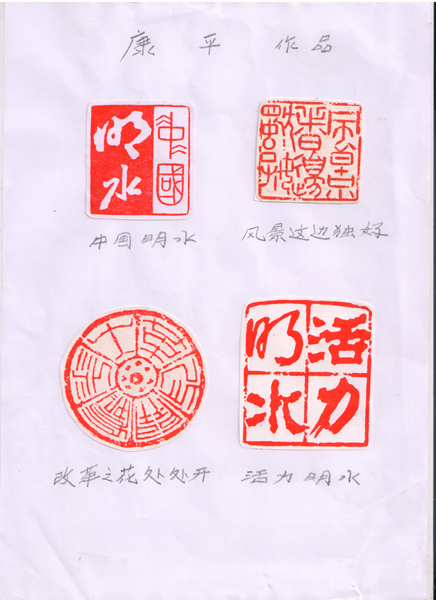 康平 作品
中國
明水
中国明水
风景这边独好
改革之花处处开
活力
明水
活力明水